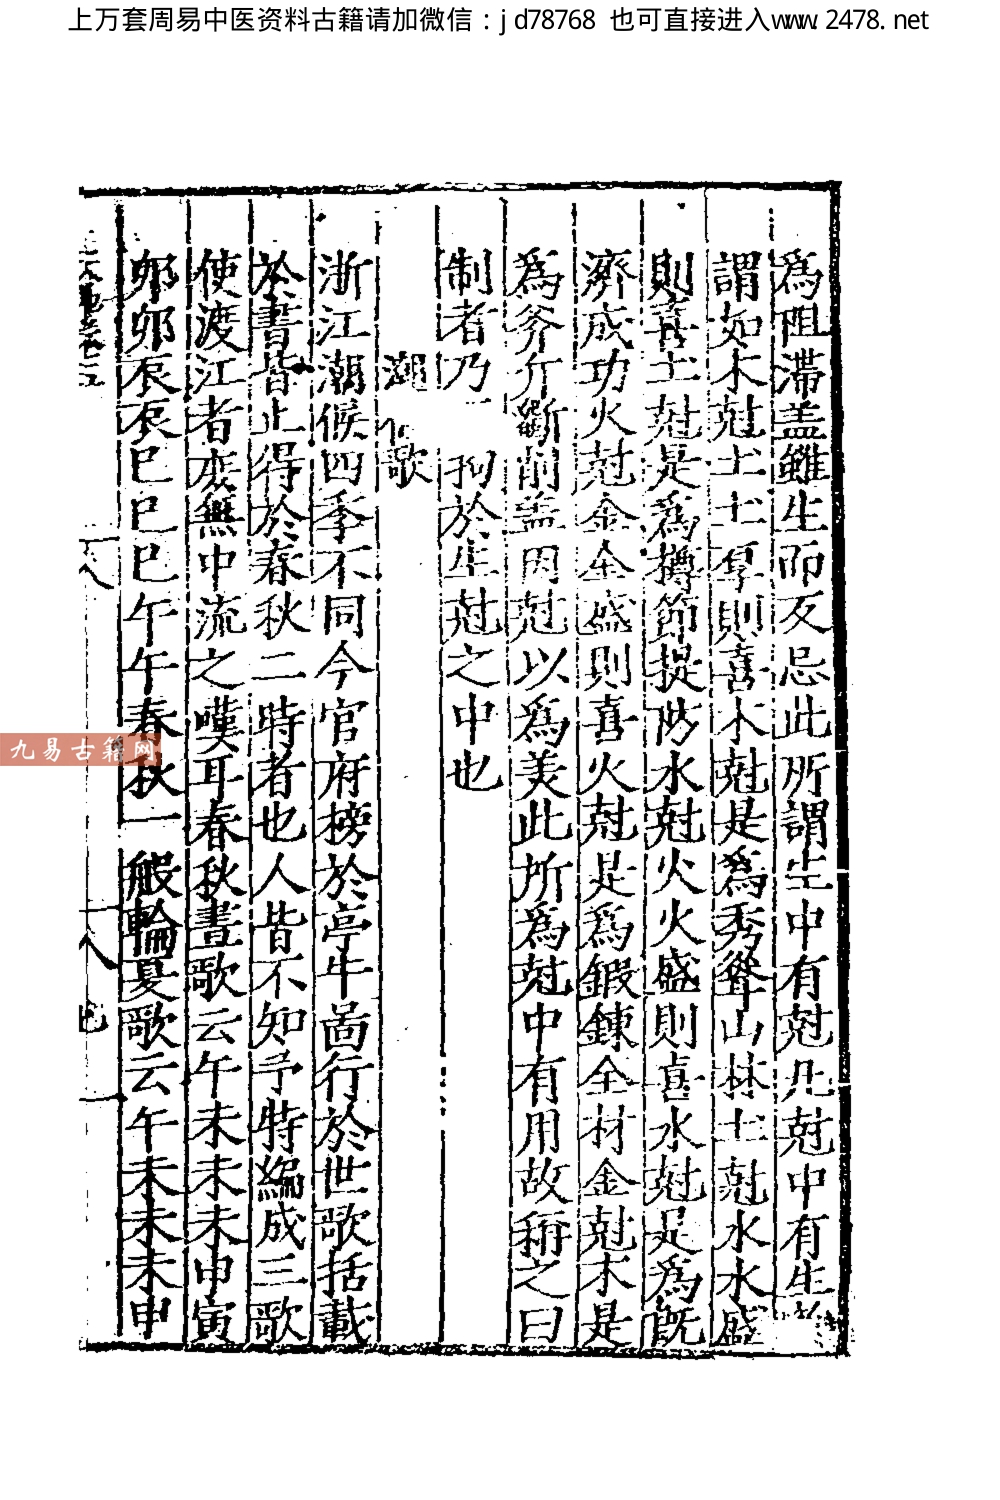 上万套周易中医资料古籍请加微信：jd78768 也可直接进入www.2478.net
為阻滯盖雖生而反忌此所謂生中有尅凢尅中有生者
謂如木尅土土厚則喜木尅是為秀聳山林土尅水水盛
則喜土尅是為撙節提防水尅火火盛則喜水尅是為既
濟成功火尅金金盛則喜火尅是為鍜鍊全材金尅木是
為斧斤斷削盖因尅以為美此所為尅中有用故稱之曰
制者乃 拘於生尅之中也
潮候歌
浙江潮候四季不同今官府榜於亭牛啚行於世歌括載
於書皆止得於春秋二時者也人皆不知予特編成三歌
使渡江者庻無中流之嘆耳春秋晝歌云午未未未申寅
夘夘辰辰巳巳巳午午春秋一般輪夏歌云午未未未申
九易古籍网